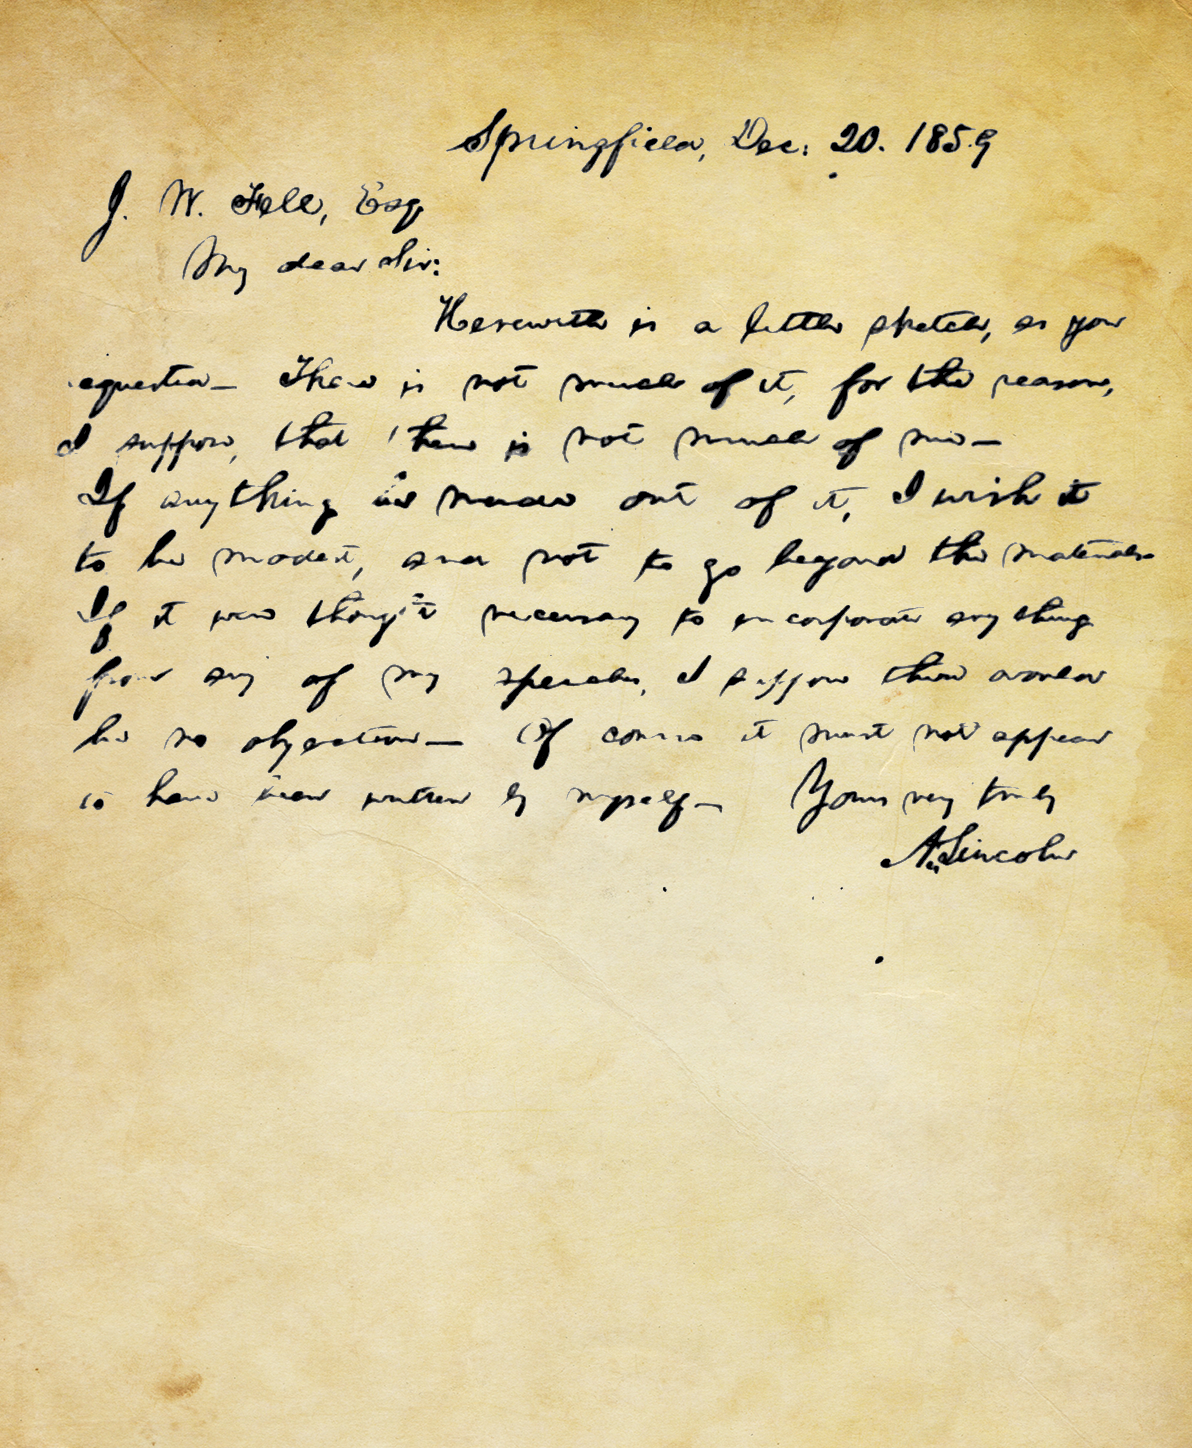 Springfield, Dec. 20. 1859
J. W. Fell, Esq
My dear Sir:
Herewith is a little sketch, as you
requested— There is not much of it, for the reason,
I suppose, that there is not much of me—
If anything be made out of it, I wish it
to be modest, and not to go beyond the materials
If it were thought necessary to incorporate any thing
from any of my speeches, I suppose there would
be no objection— Of course it must not appear
to have been written by myself— Yours very truly
A. Lincoln